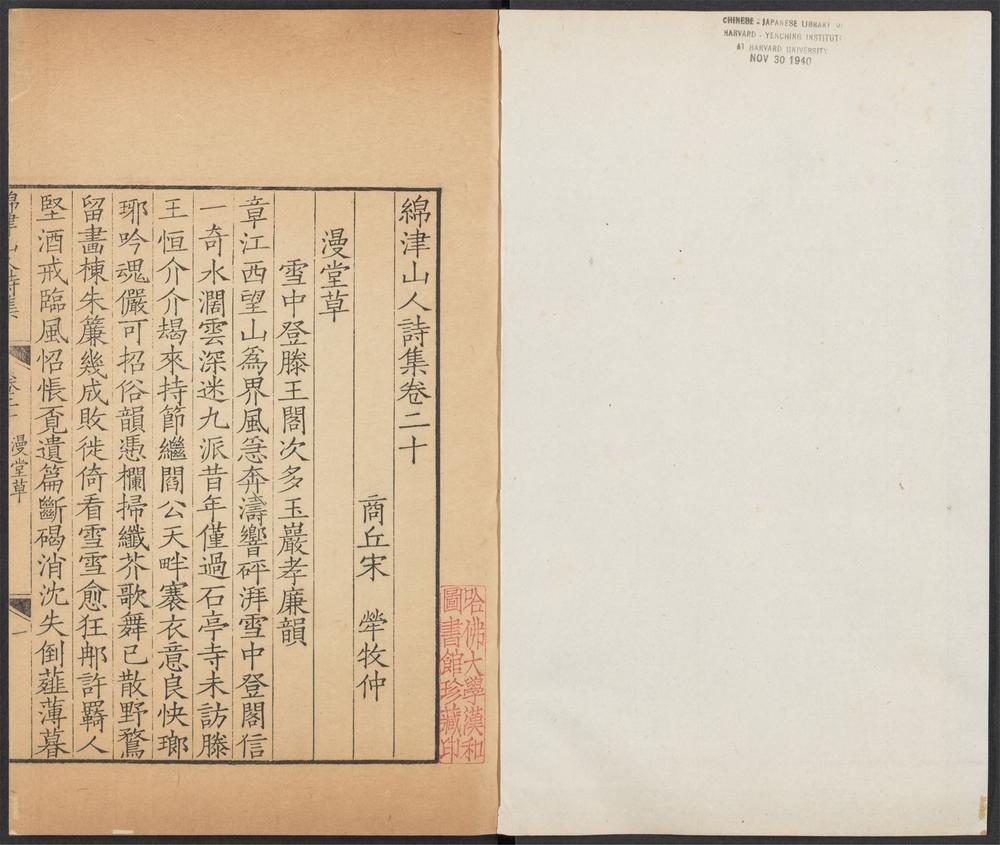 CHINESE - JAPANESE LIBRARY OF
HARVARD - YENCHING INSTITUTE
AT HARVARD UNIVERSITY
NOV 30 1940
哈佛大學漢和
圖書館珍藏印
綿津山人詩集卷二十
商丘宋　犖牧仲
漫堂草
雪中登滕王閣次多玉巖孝廉韻
章江西望山爲界風急奔濤響砰湃雪中登閣信
一奇水濶雲深迷九派昔年僅過石亭寺未訪滕
王恒介介朅來持節繼閻公天畔褰衣意良快瑯
琊吟魂儼可招俗韻憑欄掃纖芥歌舞已散野鶩
留畵棟朱簾幾成敗徙倚看雪雪愈狂那許羈人
堅酒戒臨風怊悵覔遺篇斷碣消沈失倒薤薄暮
綿津山人詩集
卷二十
漫堂草
一